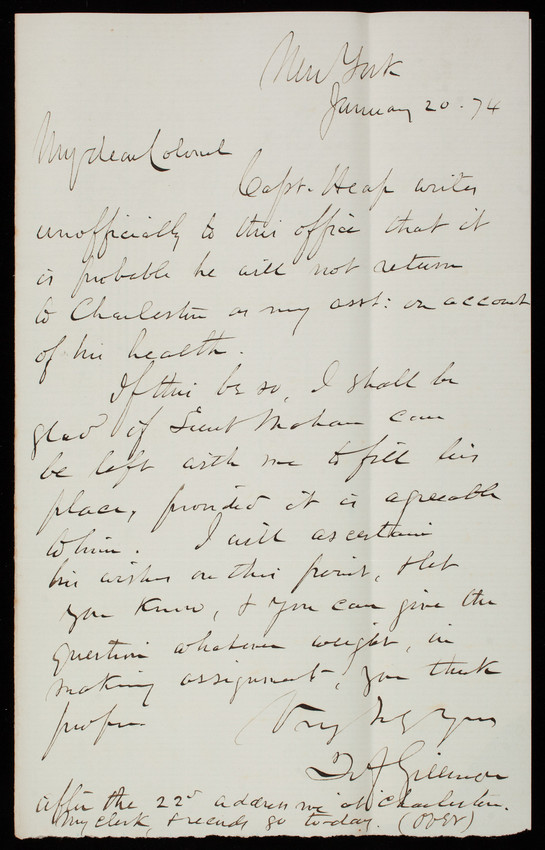 New York
January 20. 74
My dear Colonel
Capt. Heap writes
unofficially to this office that it
is probable he will not return
to Charleston as my asst: on account
of his health.
If this be so, I shall be
glad if Lieut Mahan can
be left with me to fill his
place, provided it is agreeable
to him. I will ascertain
his wishes on this point, & let
you know, & you can give the
question whatever weight, in
making assignment, you think
proper
Very Truly Yours
Q A Gillmore
After the 22d address me at Charleston.
My clerk, & records go to-day. (OVER)